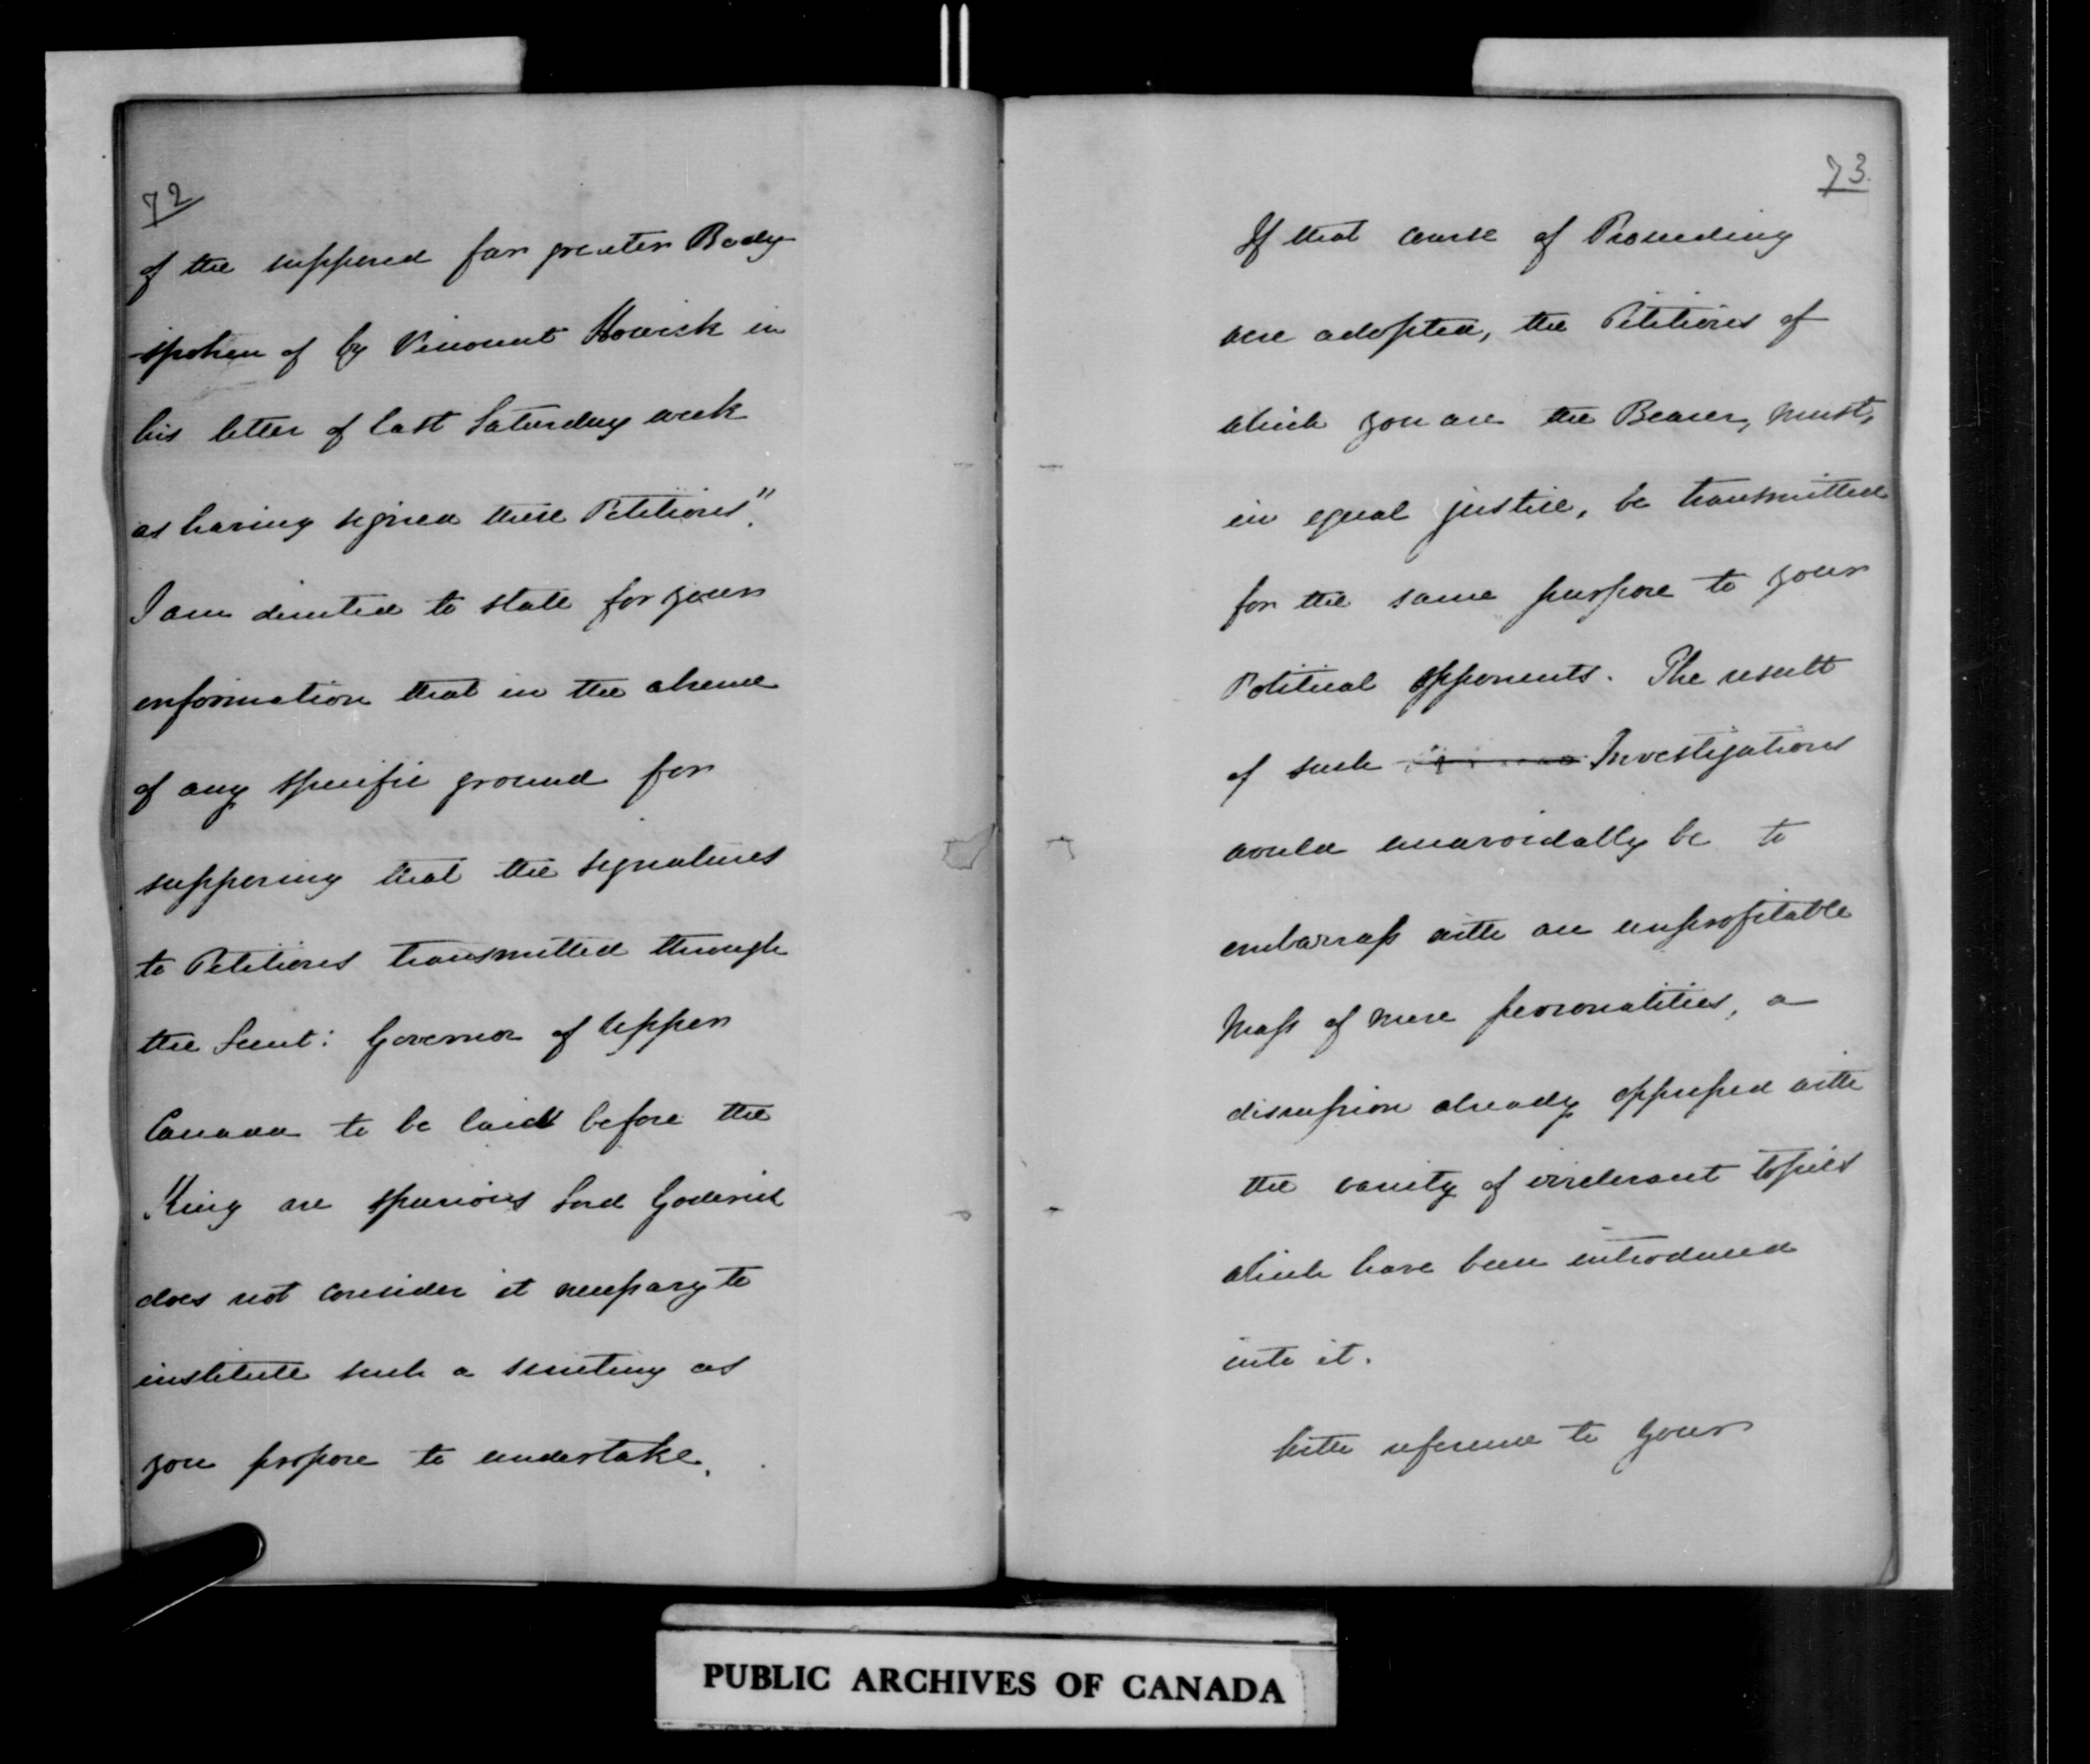 72
of the supposed far greater Body
spoken of by Viscount Howick in
his letter of last Saturday week
as having signed these Petitions".
I am directed to state for your
information that in the absence
of any specific ground for
supposing that the signatures
to Petitions transmitted through
the Lieut: Governor of Upper
Canada to be laid before the
King are spurious Lord Goderich
does not consider it necessary to
institute such a scrutiny as
you propose to undertake.
73.
If that course of Proceeding
were adopted, the Petitions of
which you are the Bearer, must,
in equal justice, be transmitted
for the same purpose to your
Political opponents. The result
of such Investigations
would unavoidably be to
embarrass with an unprofitable
Mass of mere personalities, a
discussion already oppressed with
the variety of irrelevant topics
which have been introduced
into it.
With reference to your
PUBLIC ARCHIVES OF CANADA